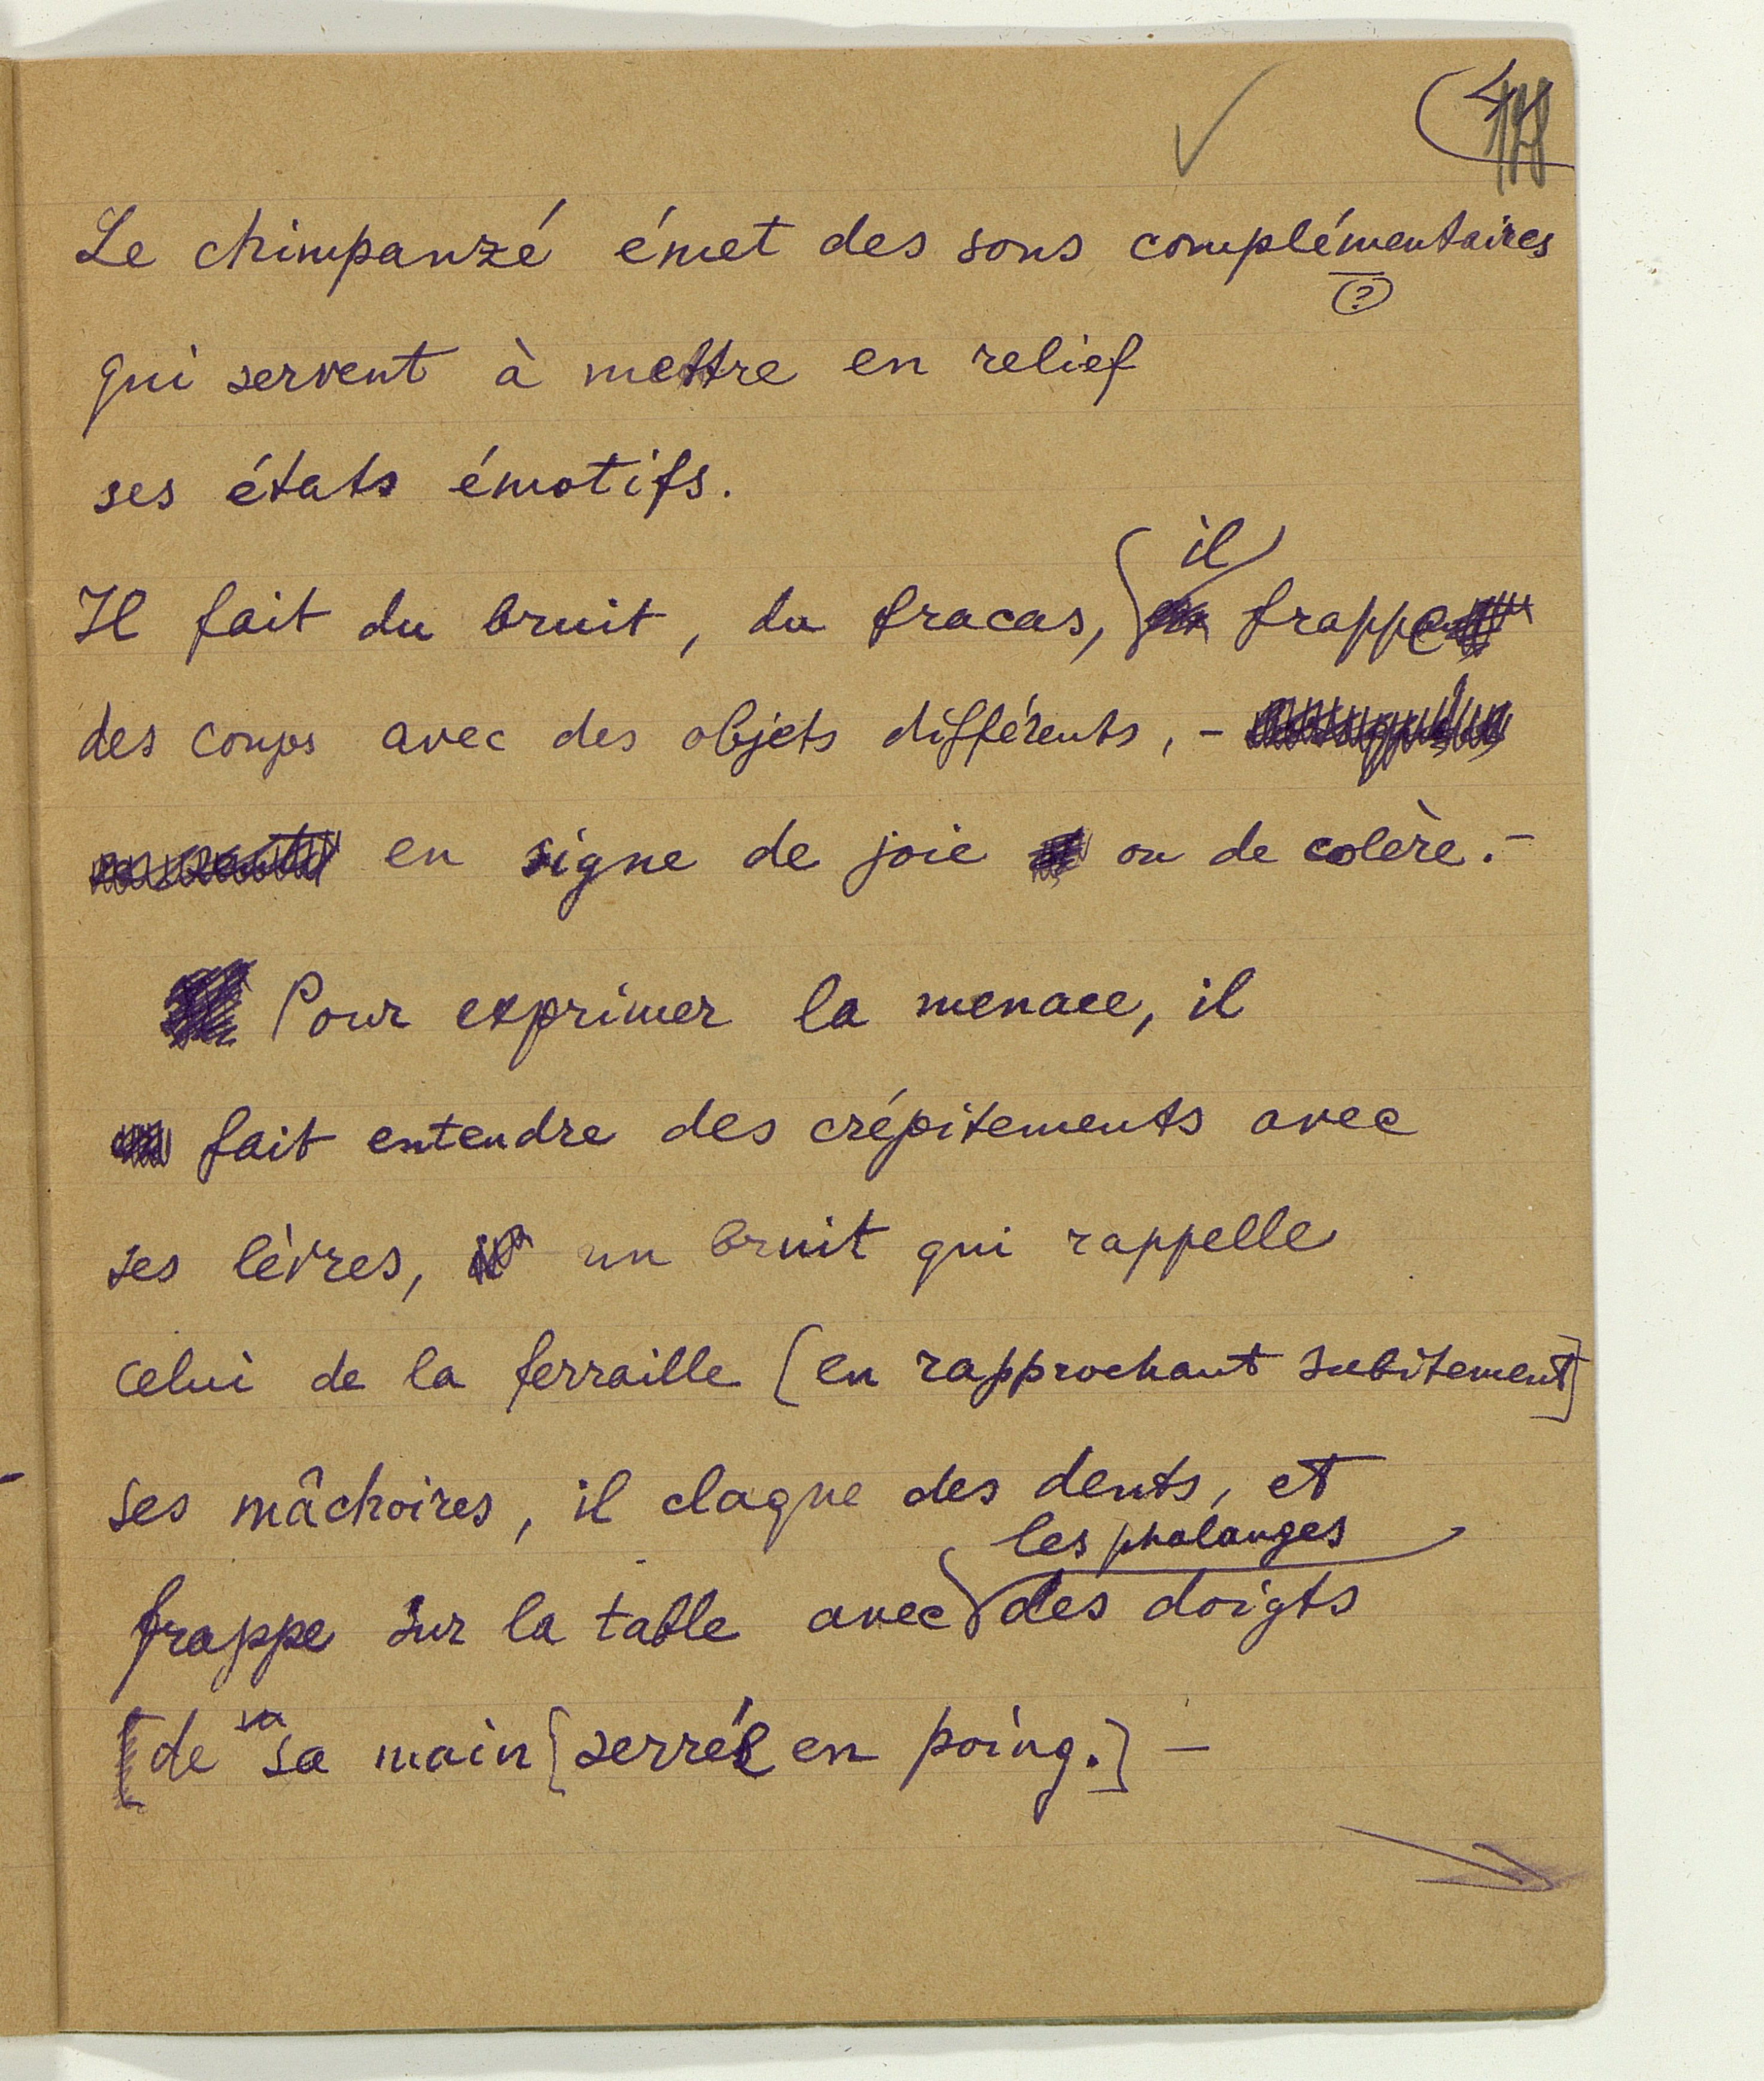 Le chimpanzé émet des sons complémentaires
(?)
qui servent à mettre en relief
ses états émotifs.
il
Il fait du bruit, du fracas, frappe
des coups avec des objets différents, -
en signe de joie ou de colère. -
Pour exprimer la menace, il
fait entendre des crépitements avec
ses lèvres, un bruit qui rappelle
celui de la ferraille [en rapprochant subitement]
ses mâchoires, il claque des dents, et
les phalanges
frappe sur la table avec des doigts
sa
[de sa main [serrée en poing.] -